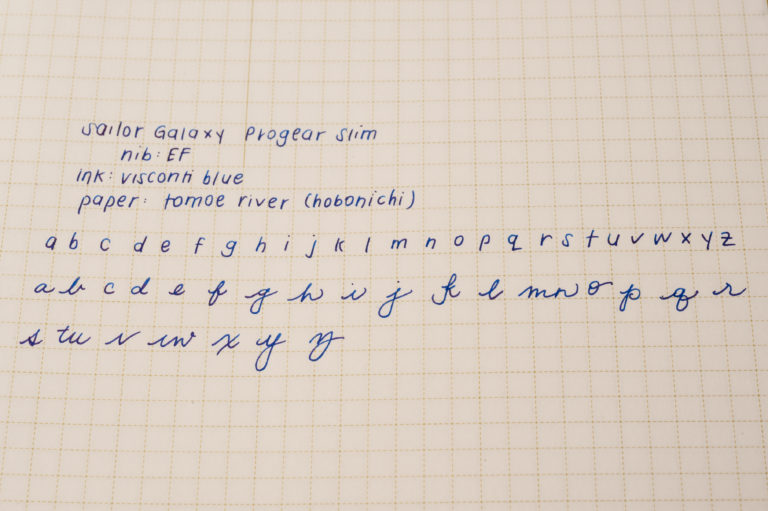 sailor Galaxy Progear slim
nib: EF
ink: visconti blue
paper: tomoe river (hobonichi)
a b c d e f g h i j k l m n o p q r s t u v w x y z
a b c d e f g h i j k l m n o p q r
s t u v w x y z